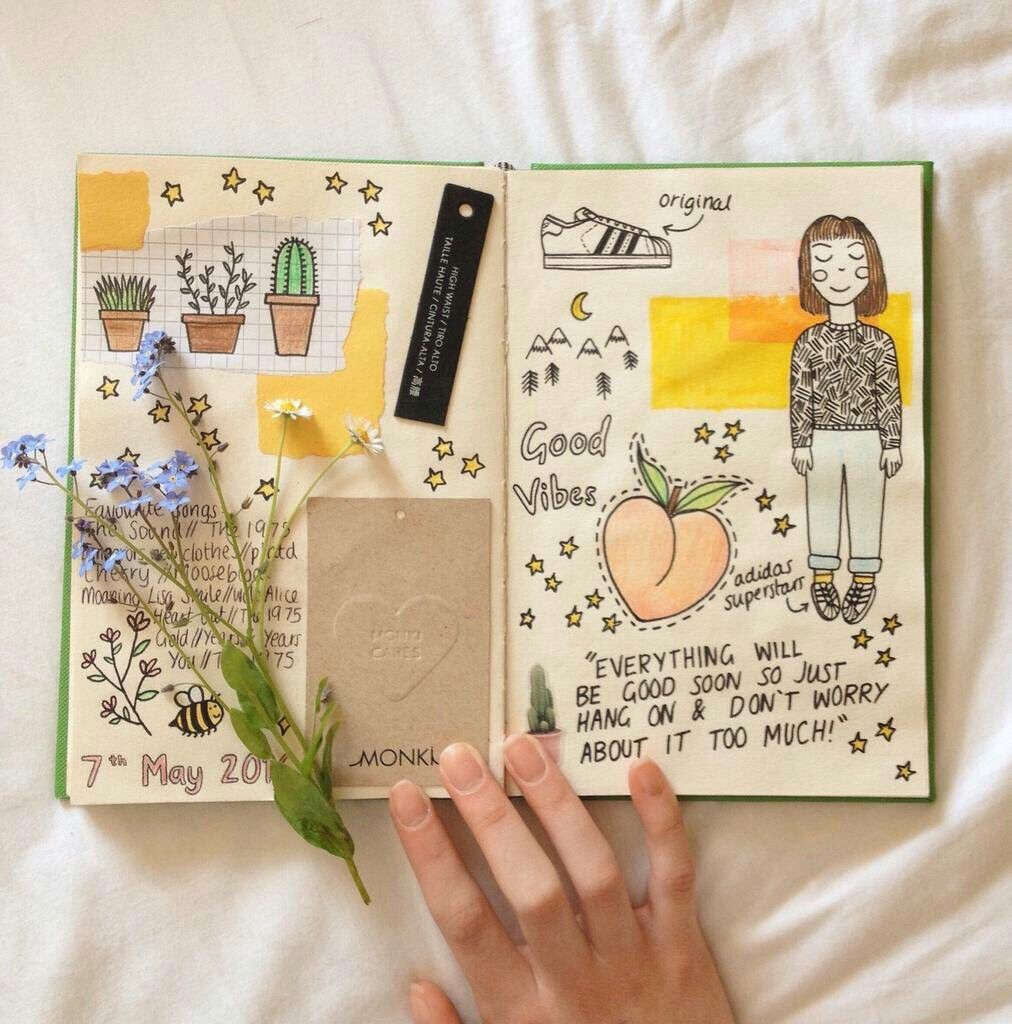 HIGH WAIST / TIRO ALTO
TAILLE HAUTE / CINTURA ALTA / 高腰
Favourite songs:
The Sound // The 1975
clothes //
Cherry // Mooseblood
Moaning Lisa Smile // Wolf Alice
Heart Out // The 1975
Gold // Years & Years
You // The 1975
MONKI
CARES
MONKI
7th May
original
Good
Vibes
adidas
superstars
"EVERYTHING WILL
BE GOOD SOON SO JUST
HANG ON & DON'T WORRY
ABOUT IT TOO MUCH!"